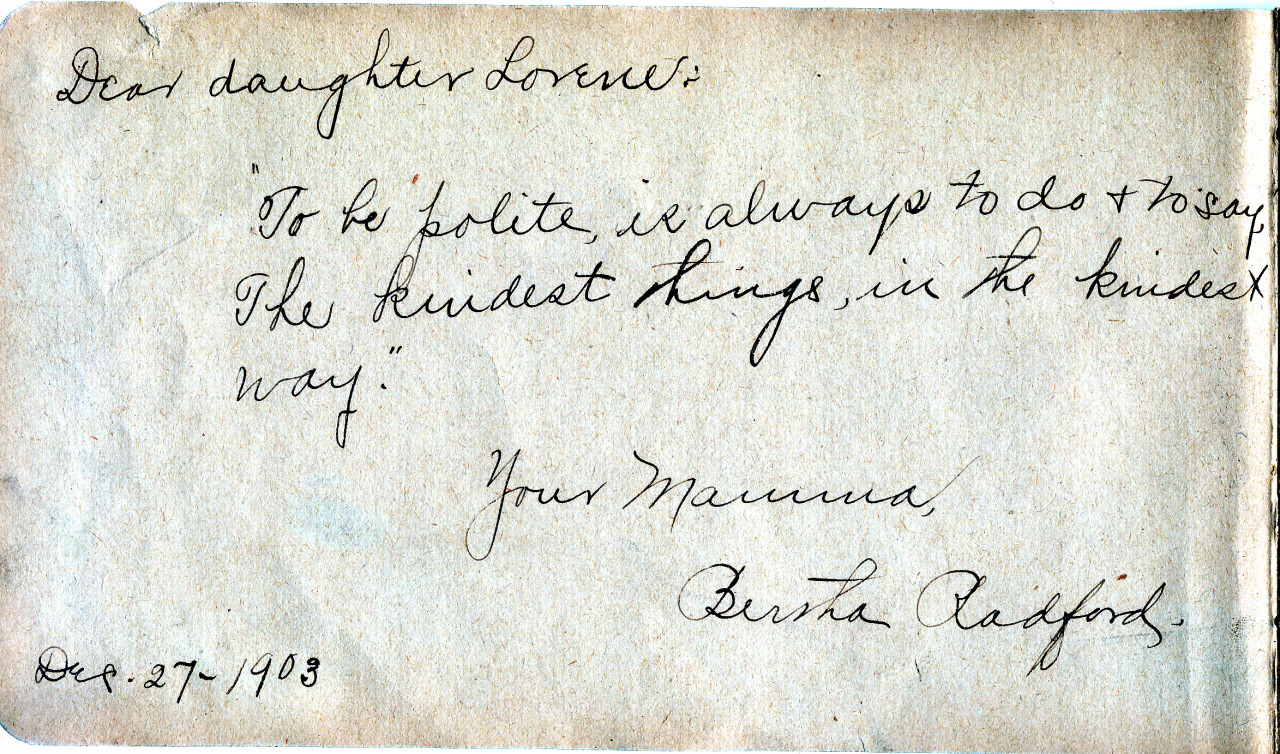 Dear daughter Lorene:
"To be polite, is always to do + to say,
The kindest things, in the kindest
way."
Your Mamma,
Bertha Radford.
Dec. 27-1903